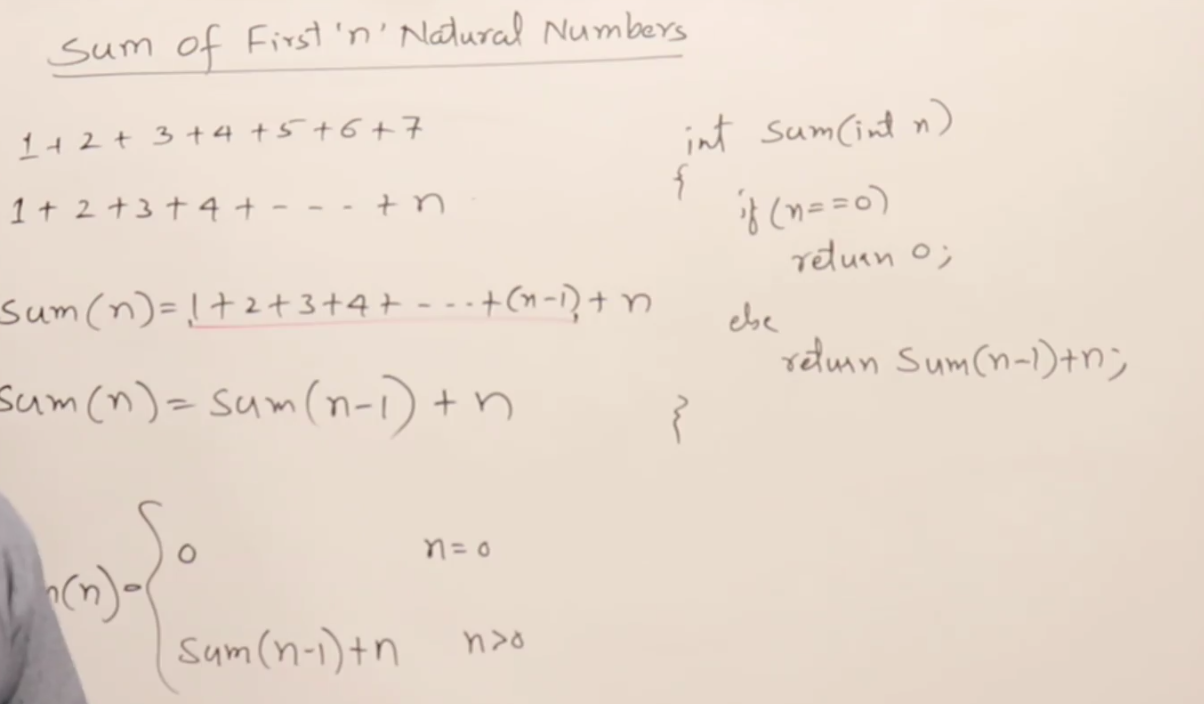 Sum of First 'n' Natural Numbers
1 + 2 + 3 + 4 + 5 + 6 + 7
1 + 2 + 3 + 4 + - - - + n
Sum(n) = 1 + 2 + 3 + 4 + - - - + (n-1) + n
Sum(n) = Sum(n-1) + n
(n) =
0 n = 0
Sum(n-1)+n n>0
int Sum(int n)
{
if (n==0)
return 0;
else
return Sum(n-1)+n;
}